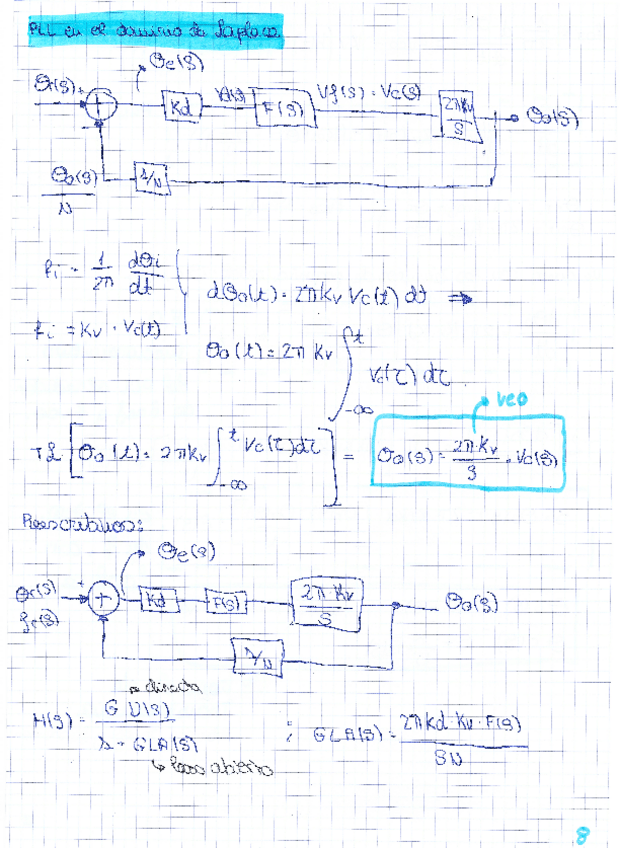 PLL en el dominio de Laplace
θe(s)
θr(s) +
Kd
Vd(s)
F(s)
Vf(s) = Vc(s)
2πKv
s
θo(s)
θo(s)
N
1/N
fi = 1/2π dθi/dt
dθo(t) = 2πKv Vc(t) dt ⇒
fi = Kv · Vc(t)
θo(t) = 2π Kv ∫ t -∞ Vc(τ) dτ
VCO
TL [θo(t) = 2πKv ∫ t -∞ Vc(τ)dτ] = θo(s) = 2πKv/s · Vc(s)
Reescribimos:
θe(s)
θr(s) +
fr(s)
Kd
F(s)
2π Kv
s
θo(s)
1/N
directa
H(s) = G D(s) / 1 - GLA(s) ; GLA(s) = 2πKd·Kv·F(s) / SN
lazo abierto
8